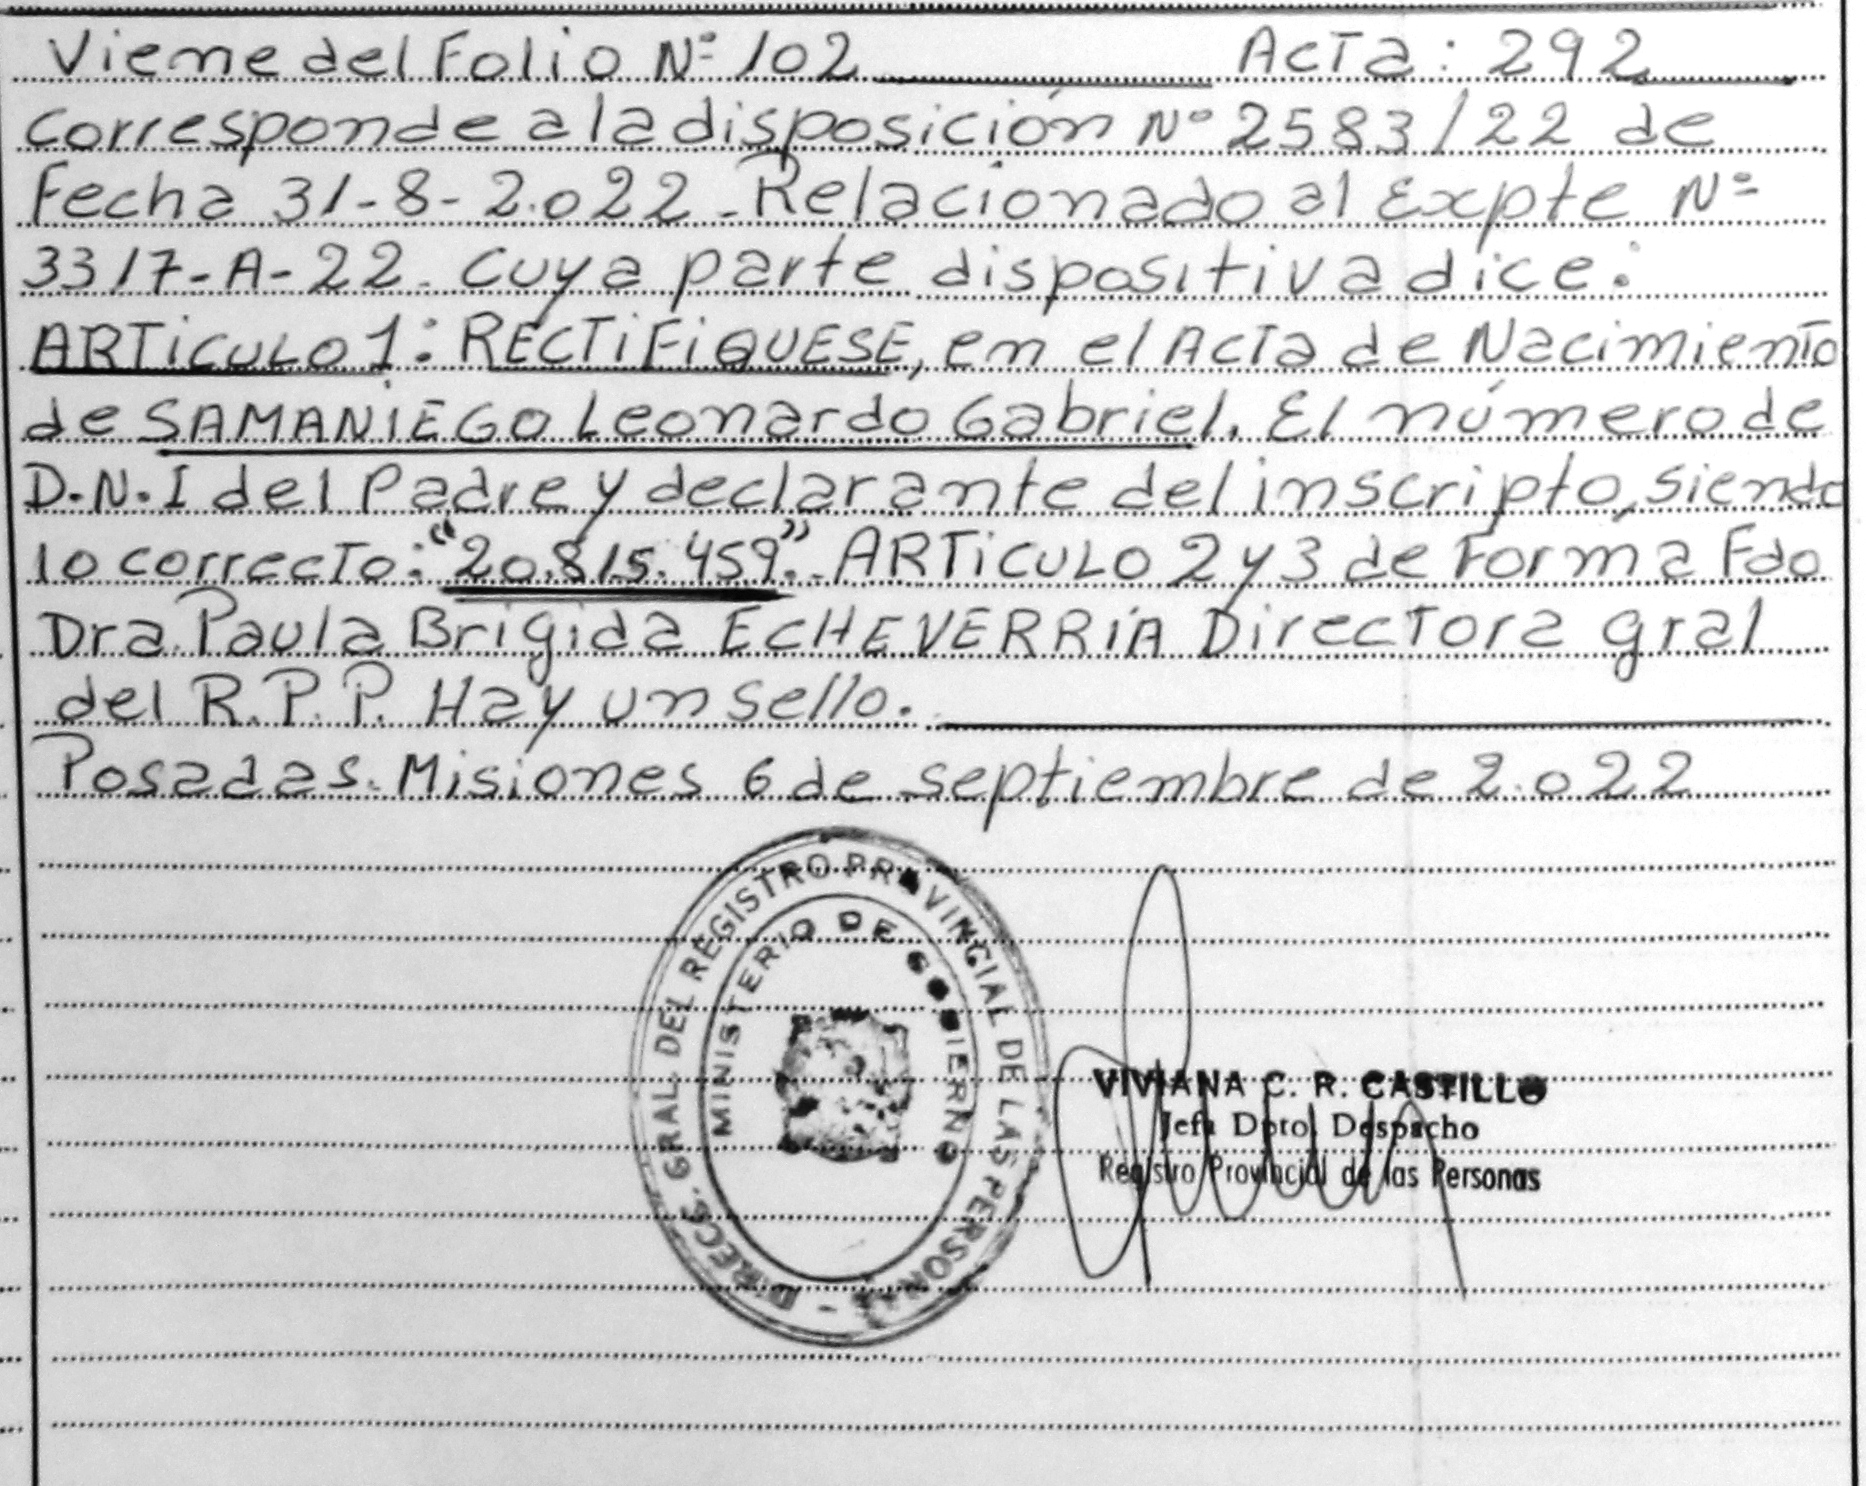 Viene del Folio Nº 102 Acta: 292
Corresponde a la disposición Nº 2583/22 de
Fecha 31-8-2.022. Relacionado al Expte Nº
3317-A-22. Cuya parte dispositiva dice:
ARTICULO 1: RECTIFIQUESE, en el Acta de Nacimiento
de SAMANIEGO Leonardo Gabriel. El número de
D.N.I del Padre y declarante del inscripto, siendo
lo correcto: "20.815.459". ARTICULO 2 y 3 de Forma Fdo
Dra. Paula Brigida ECHEVERRIA Directora gral
del R.P.P. Hay un sello.
Posadas. Misiones 6 de septiembre de 2.022
DIREC. GRAL. DEL REGISTRO PROVINCIAL DE LAS PERSONAS -
MINISTERIO DE GOBIERNO
VIVIANA C. R. CASTILLO
Jefa Dpto. Despacho
Registro Provincial de las Personas